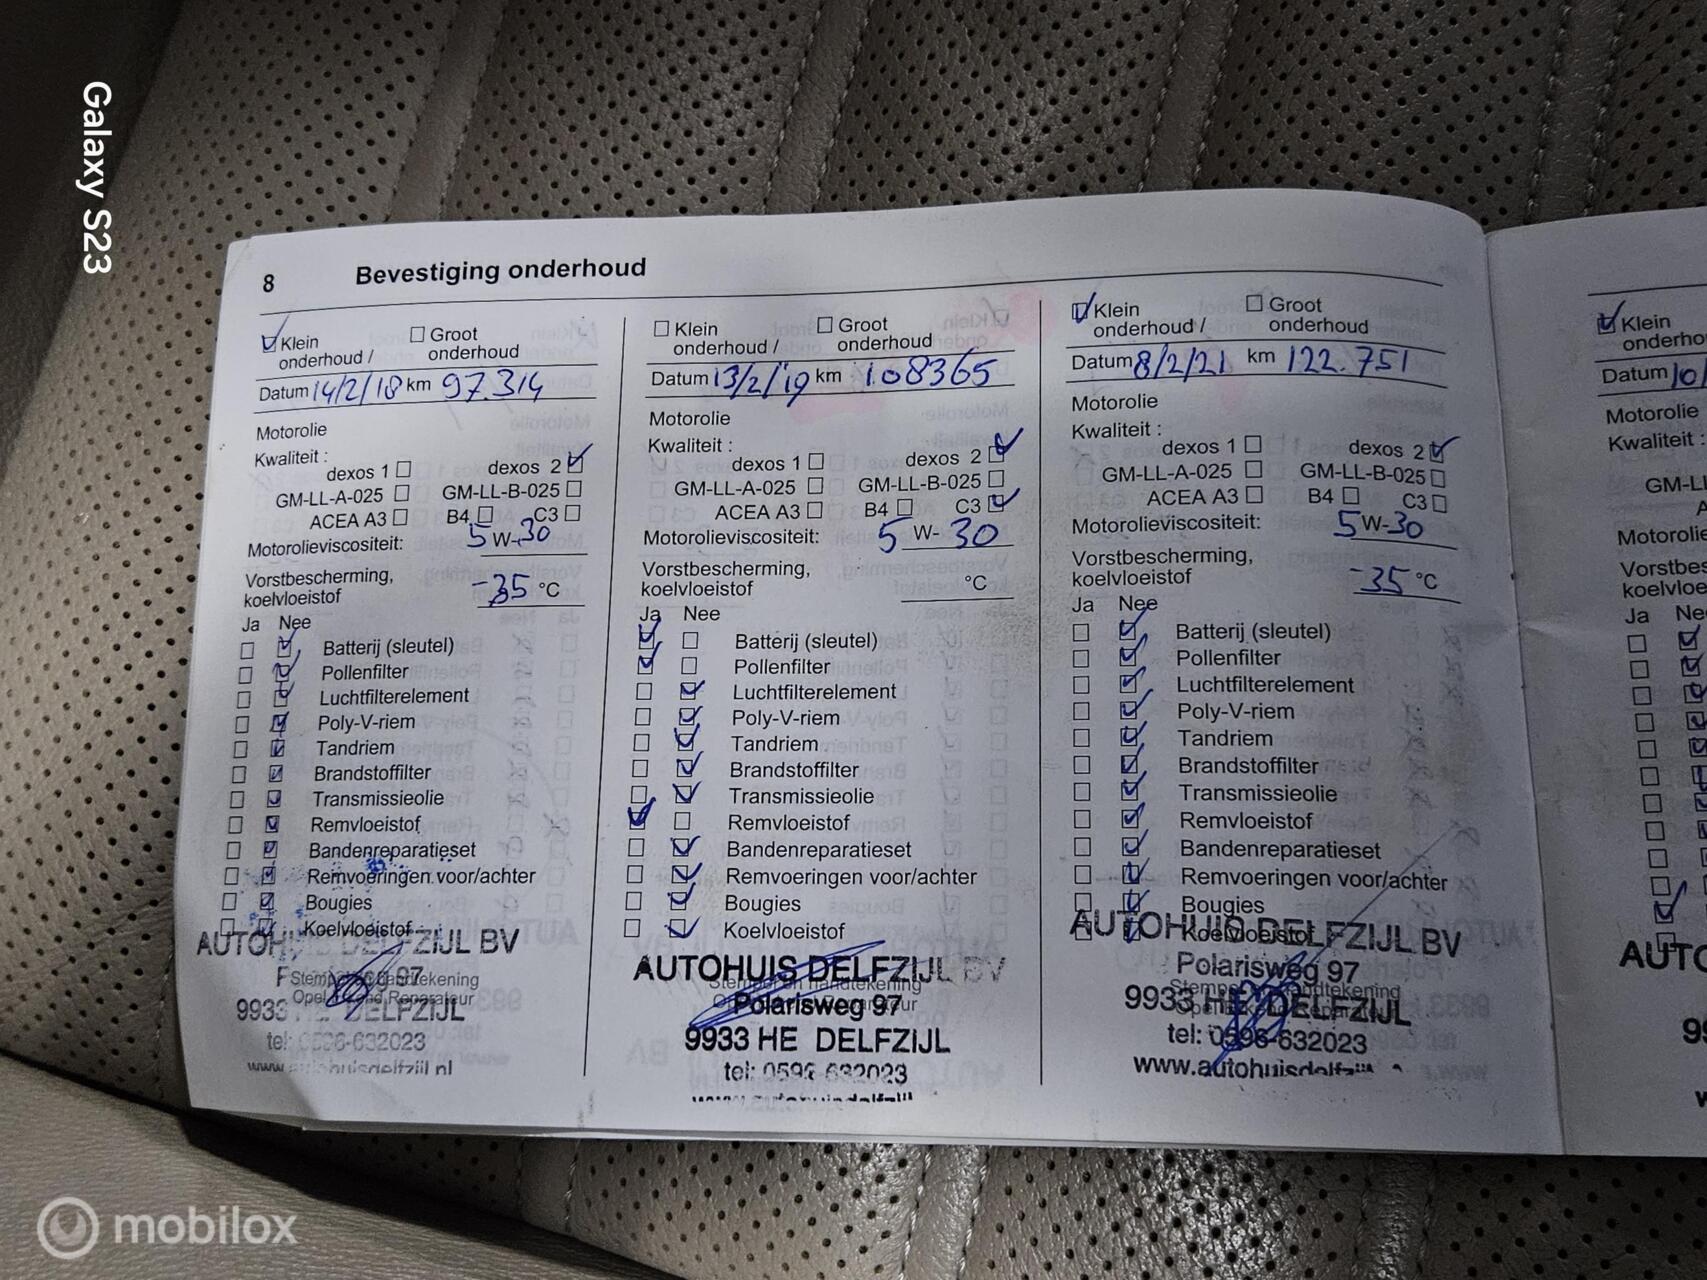 Galaxy S23
8 Bevestiging onderhoud
Klein onderhoud / Groot onderhoud
Datum 14/2/18 km 97.314
Motorolie
Kwaliteit :
dexos 1 dexos 2
GM-LL-A-025 GM-LL-B-025
ACEA A3 B4 C3
Motorolieviscositeit: 5 W-30
Vorstbescherming,
koelvloeistof -35 °C
Ja Nee
Batterij (sleutel)
Pollenfilter
Luchtfilterelement
Poly-V-riem
Tandriem
Brandstoffilter
Transmissieolie
Remvloeistof
Bandenreparatieset
Remvoeringen voor/achter
Bougies
Koelvloeistof
AUTOHUIS DELFZIJL BV
Stempel en handtekening
Opel Erkend Reparateur
9933 HE DELFZIJL
tel: 0596-632023
www.autohuisdelfzijl.nl
Klein onderhoud / Groot onderhoud
Datum 13/2/'19 km 108365
Motorolie
Kwaliteit :
dexos 1 dexos 2
GM-LL-A-025 GM-LL-B-025
ACEA A3 B4 C3
Motorolieviscositeit: 5 W- 30
Vorstbescherming,
koelvloeistof °C
Ja Nee
Batterij (sleutel)
Pollenfilter
Luchtfilterelement
Poly-V-riem
Tandriem
Brandstoffilter
Transmissieolie
Remvloeistof
Bandenreparatieset
Remvoeringen voor/achter
Bougies
Koelvloeistof
AUTOHUIS DELFZIJL BV
Stempel en handtekening
Polarisweg 97
9933 HE DELFZIJL
tel: 0596-632023
Klein onderhoud / Groot onderhoud
Datum 8/2/21 km 122.751
Motorolie
Kwaliteit :
dexos 1 dexos 2
GM-LL-A-025 GM-LL-B-025
ACEA A3 B4 C3
Motorolieviscositeit: 5 W-30
Vorstbescherming,
koelvloeistof -35 °C
Ja Nee
Batterij (sleutel)
Pollenfilter
Luchtfilterelement
Poly-V-riem
Tandriem
Brandstoffilter
Transmissieolie
Remvloeistof
Bandenreparatieset
Remvoeringen voor/achter
Bougies
Koelvloeistof
AUTOHUIS DELFZIJL BV
Polarisweg 97
Stempel en handtekening
9933 HE DELFZIJL
Opel Erkend Reparateur
tel: 0596-632023
Klein
Datum 10/
Motorolie
Kwaliteit :
Ja
mobilox